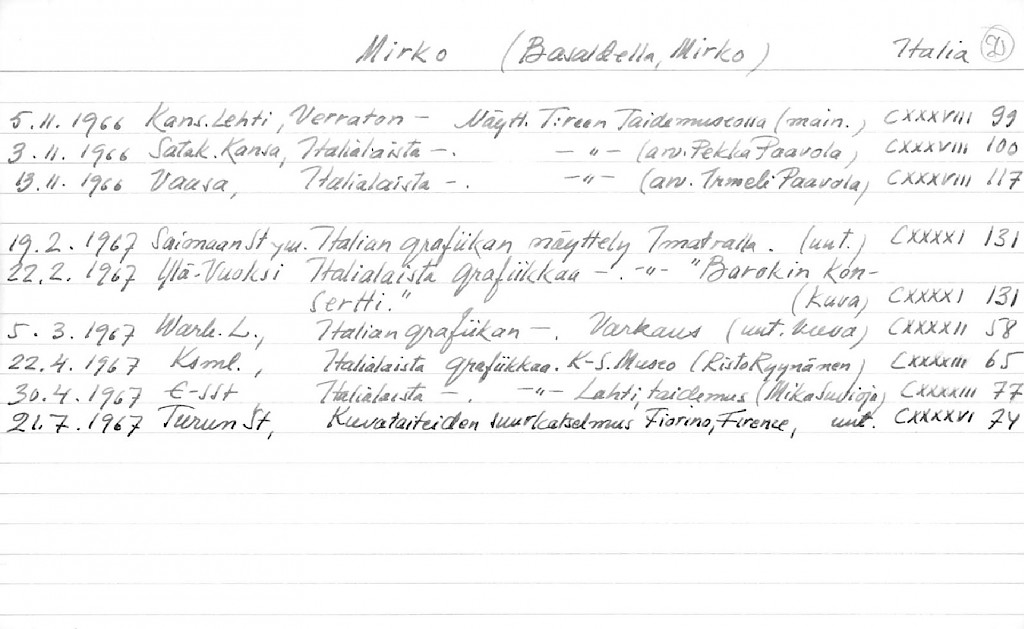 Mirko (Basaldella, Mirko) Italia
5.11.1966 Kans. Lehti, Verraton – Näytt. T:reen Taidemuseossa (main.) CXXXVIII 99
3.11.1966 Satak. Kansa, Italialaista –. –"– (arv. Pekka Paavola) CXXXVIII 100
13.11.1966 Vaasa, Italialaista –. –"– (arv. Irmeli Paavola) CXXXVIII 117
19.2.1967 Saimaan St ym. Italian grafiikan näyttely Imatralla. (uut.) CXXXXI 131
22.2.1967 Ylä-Vuoksi Italialaista grafiikkaa –.–"– "Barokin kon-
sertti." (kuva) CXXXXI 131
5.3.1967 Wark. L., Italian grafiikan –. Varkaus (uut. kuva) CXXXXII 58
22.4.1967 Ksml., Italialaista grafiikkaa. K-S. Museo (Risto Ryynänen) CXXXXIII 65
30.4.1967 E-SSt Italialaista –. –"– Lahti, taidemus (Mika Suvioja) CXXXXIII 77
21.7.1967 Turun St, Kuvataiteiden suurkatselmus Fiorino, Firence, uut. CXXXXVI 74